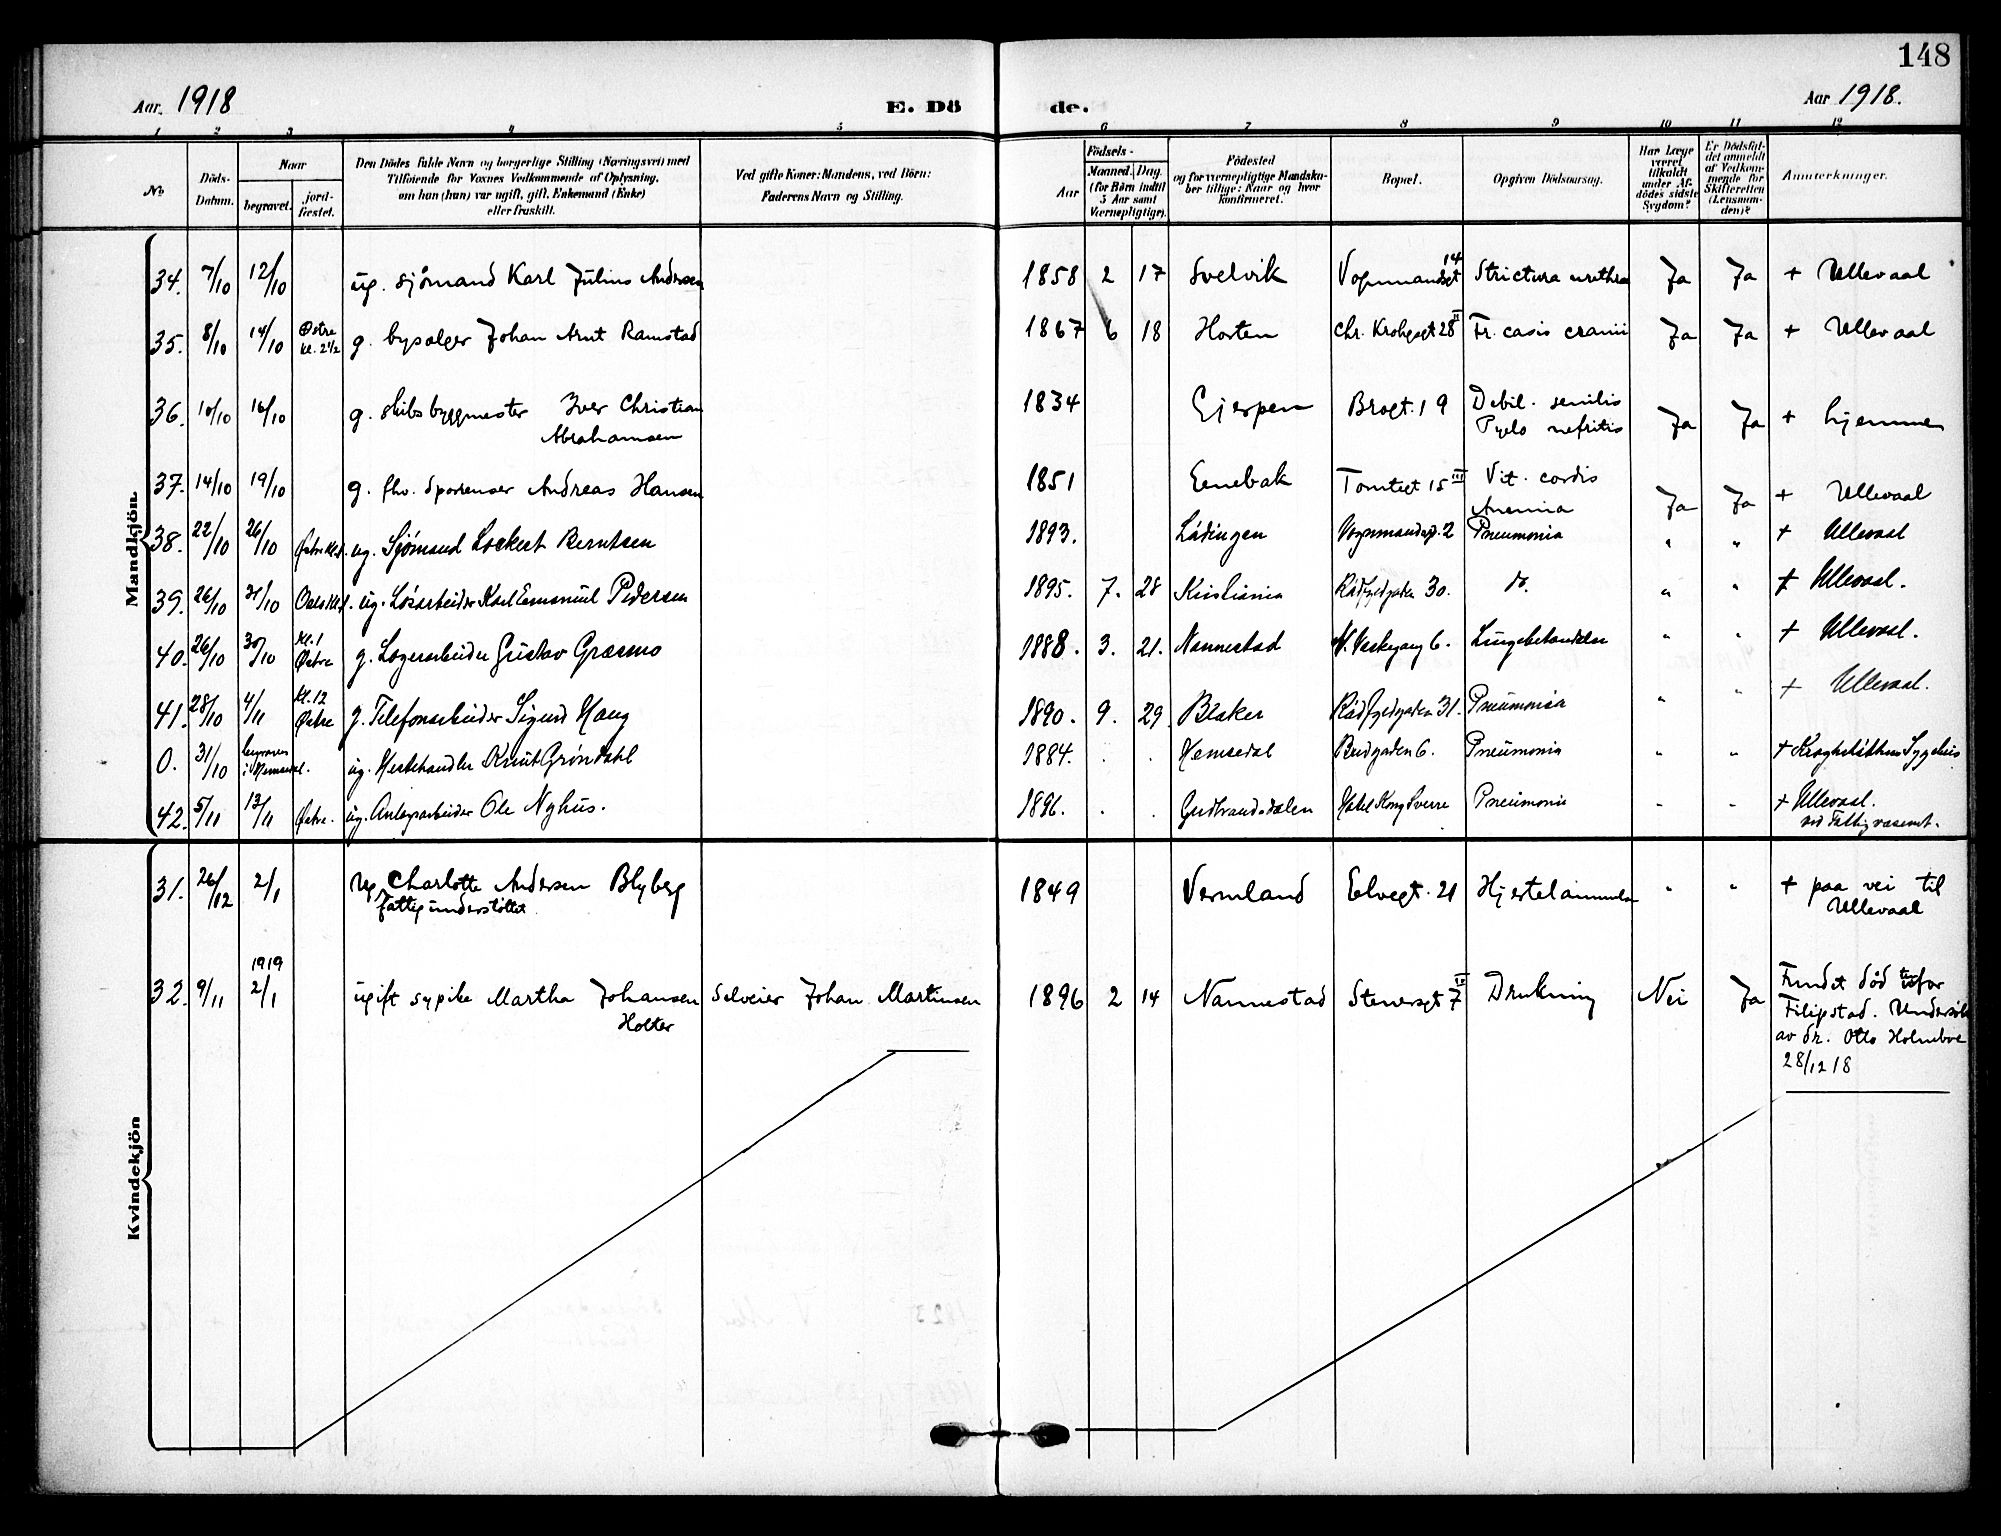 148
Aar. 1918
E. Dö
de.
Aar 1918.
1 2 3 4 5 6 7 8 9 10 11 12
No
Döds-
Datum.
Naar
begravet.
jord-
fæstet.
Den Dödes fulde Navn og borgerlige Stilling (Næringsvei) med
Tilföiende for Voxnes Vedkommende af Oplysning,
om han (hun) var ugift, gift, Enkemand (Enke)
eller fraskilt.
Ved gifte Koner: Mandens, ved Börn:
Faderens Navn og Stilling.
Födsels-
Aar
Maaned. Dag.
(for Börn indtil
5 Aar samt
Værnepligtige).
Födested
og for værnepligtige Mandska-
ber tillige: Naar og hvor
konfirmeret.
Bopæl.
Opgiven Dödsaarsag.
Har Læge
været
tilkaldt
under Af-
dödes sidste
Sygdom?
Er Dödsfal-
det anmeldt
af Vedkom-
mende for
Skifteretten
(Lensman-
den)?
Anmerkninger.
Mandkjön
34. 7/10 12/10 ug. sjömand Karl Julius Andersen 1858 2 17 Svelvik 14 Strictura urethra Ja Ja + Ullevaal
35. 8/10 14/10 Østre kl. 2 1/2 g. bysælger Johan Arnt Ramstad 1867 6 18 Horten Chr. Krohgsgt 28 II Fr. casis cranii Ja Ja + Ullevaal
36. 10/10 16/10 g. skibsbyggmester Iver Christian
Abrahamsen 1834 Gjerpen Brogt. 19 Debil. senilis
Pyelo nefritis Ja Ja + hjemme
37. 14/10 19/10 g. fhv. Andreas Hansen 1851 Enebak Tomtegt 15 III Vit. cordis
Anemia Ja Ja + Ullevaal
38. 22/10 26/10 ug. Sjömand Lockert Berntsen 1893. Lödingen Vognmandsg. 2 Pneumonia " " + Ullevaal
39. 26/10 31/10 ug. Løsarbeider Karl Emanuel Pedersen 1895. 7. 28 Kristiania Rådfygedgaden 30. do. " " + Ullevaal.
40. 26/10 30/10 kl. 1 Østre g. Lagerarbeider Gustav Græsmo 1888. 3. 21. Nannestad 6. Lungebetændelse " " + Ullevaal.
41. 28/10 4/11 kl. 12 Østre g. Telefonarbeider Sigurd Haug 1890. 9. 29. Blaker 31. Pneumonia " " + Ullevaal.
0. 31/10 i Hemsedal. ug. Hestehandler Knut Grøndahl 1884. . . Hemsedal Brugaden 6. Pneumonia " " +
42. 5/11 13/11 Østre. ug. Anlægsarbeider Ole Nyhus. 1896. . . Gudbrandsdalen Hotel Kong Sverre Pneumonia " " + Ullevaal.
ved Fattigvæsenet.
Kvindekjön
31. 26/12 2/1 Charlotte Andersen Blyberg
fattigunderstøttet 1849 Vermland Elvegt. 21 Hjertelammelse " " + paa vei til
Ullevaal
32. 9/11 1919 2/1 ugift sypike Martha Johansen
Holter Selveier Johan Martinsen 1896 2 14 Nannestad Stenersgt 7 IV Drukning Nei Ja Fundet død utfor
Filipstad. Undersøkt
av dr. Otto Holmboe
28/12 18